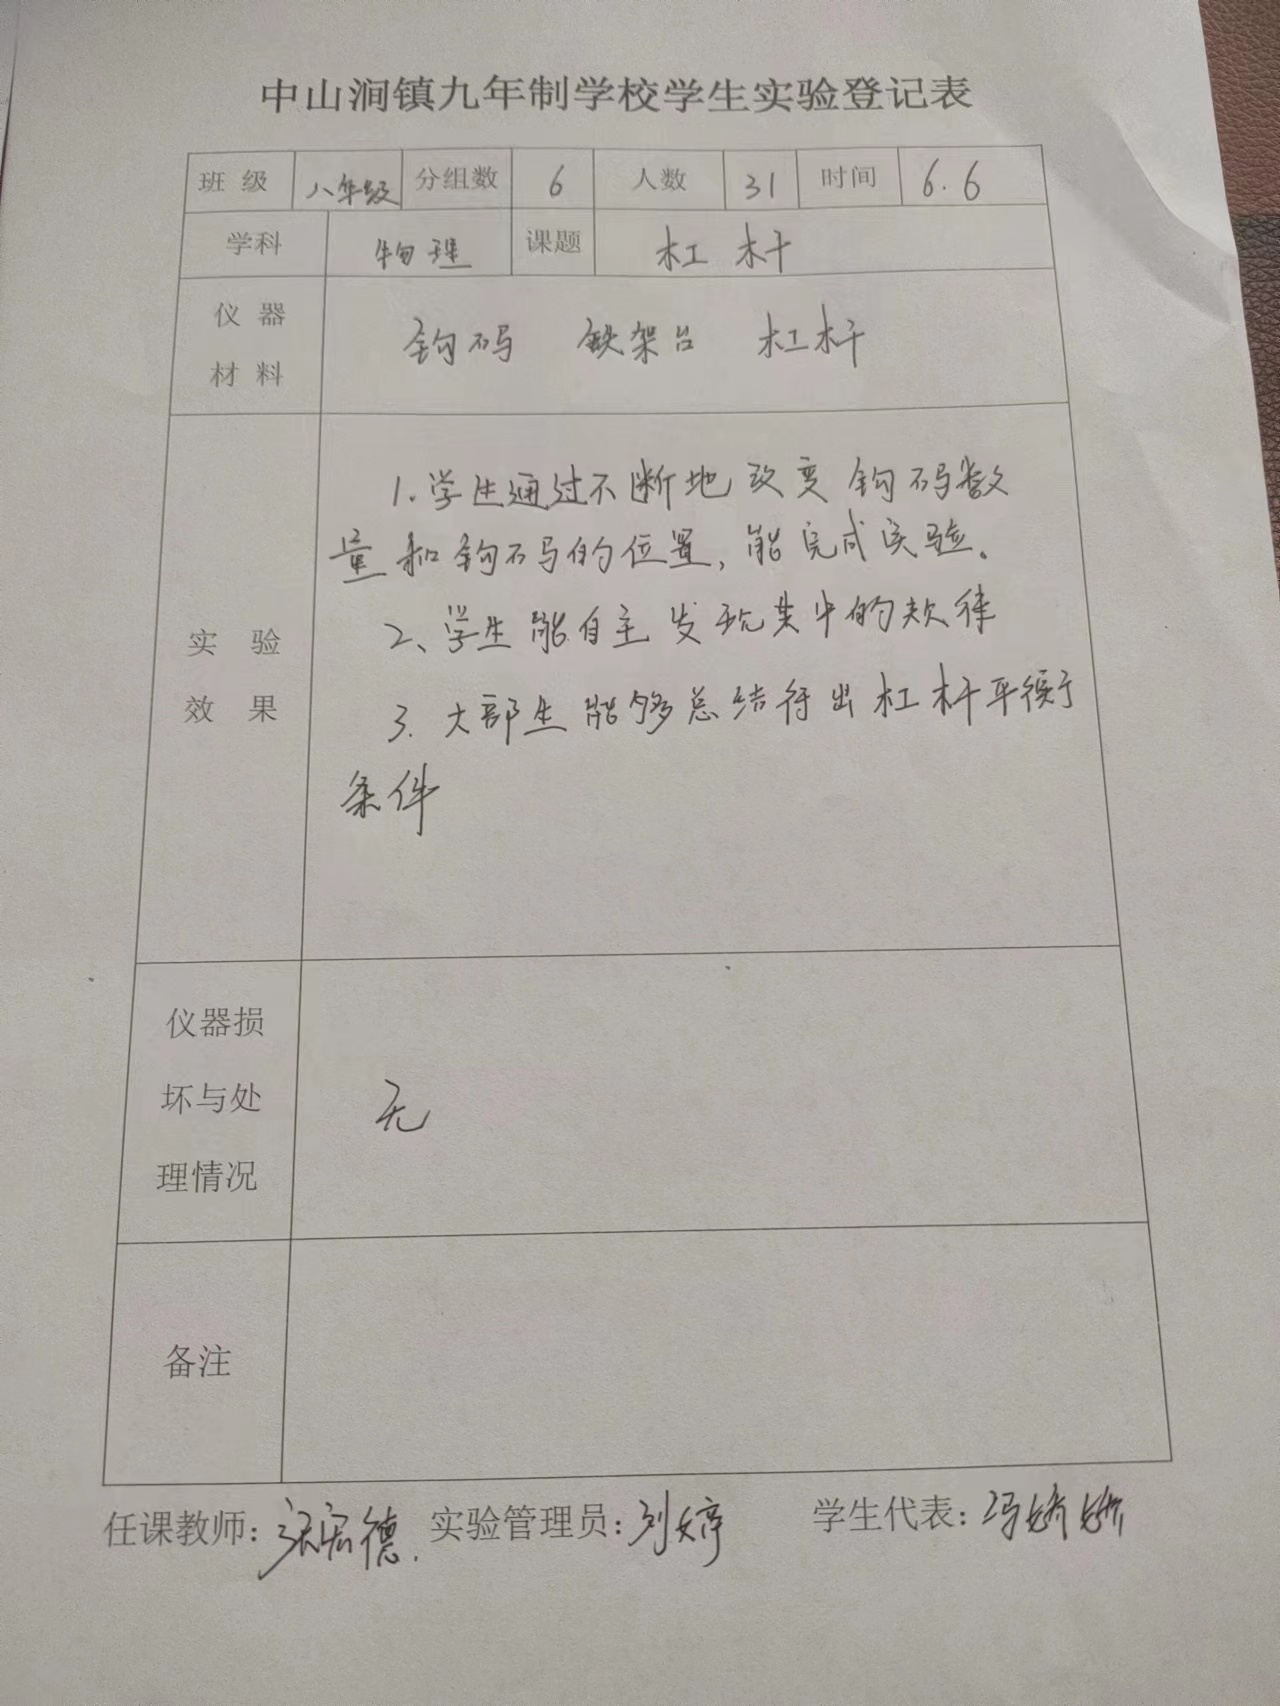 中山涧镇九年制学校学生实验登记表
班级 八年级 分组数 6 人数 31 时间 6.6
学科 物理 课题 杠杆
仪器
材料
钩码 铁架台 杠杆
1.学生通过不断地改变钩码数
量和钩码的位置,能完成实验。
2、学生能自主发现其中的规律
3.大部生能够总结得出杠杆平衡
条件
实验
效果
仪器损
坏与处
理情况
无
备注
任课教师: 宏德. 实验管理员:刘婷 学生代表:冯娇娇